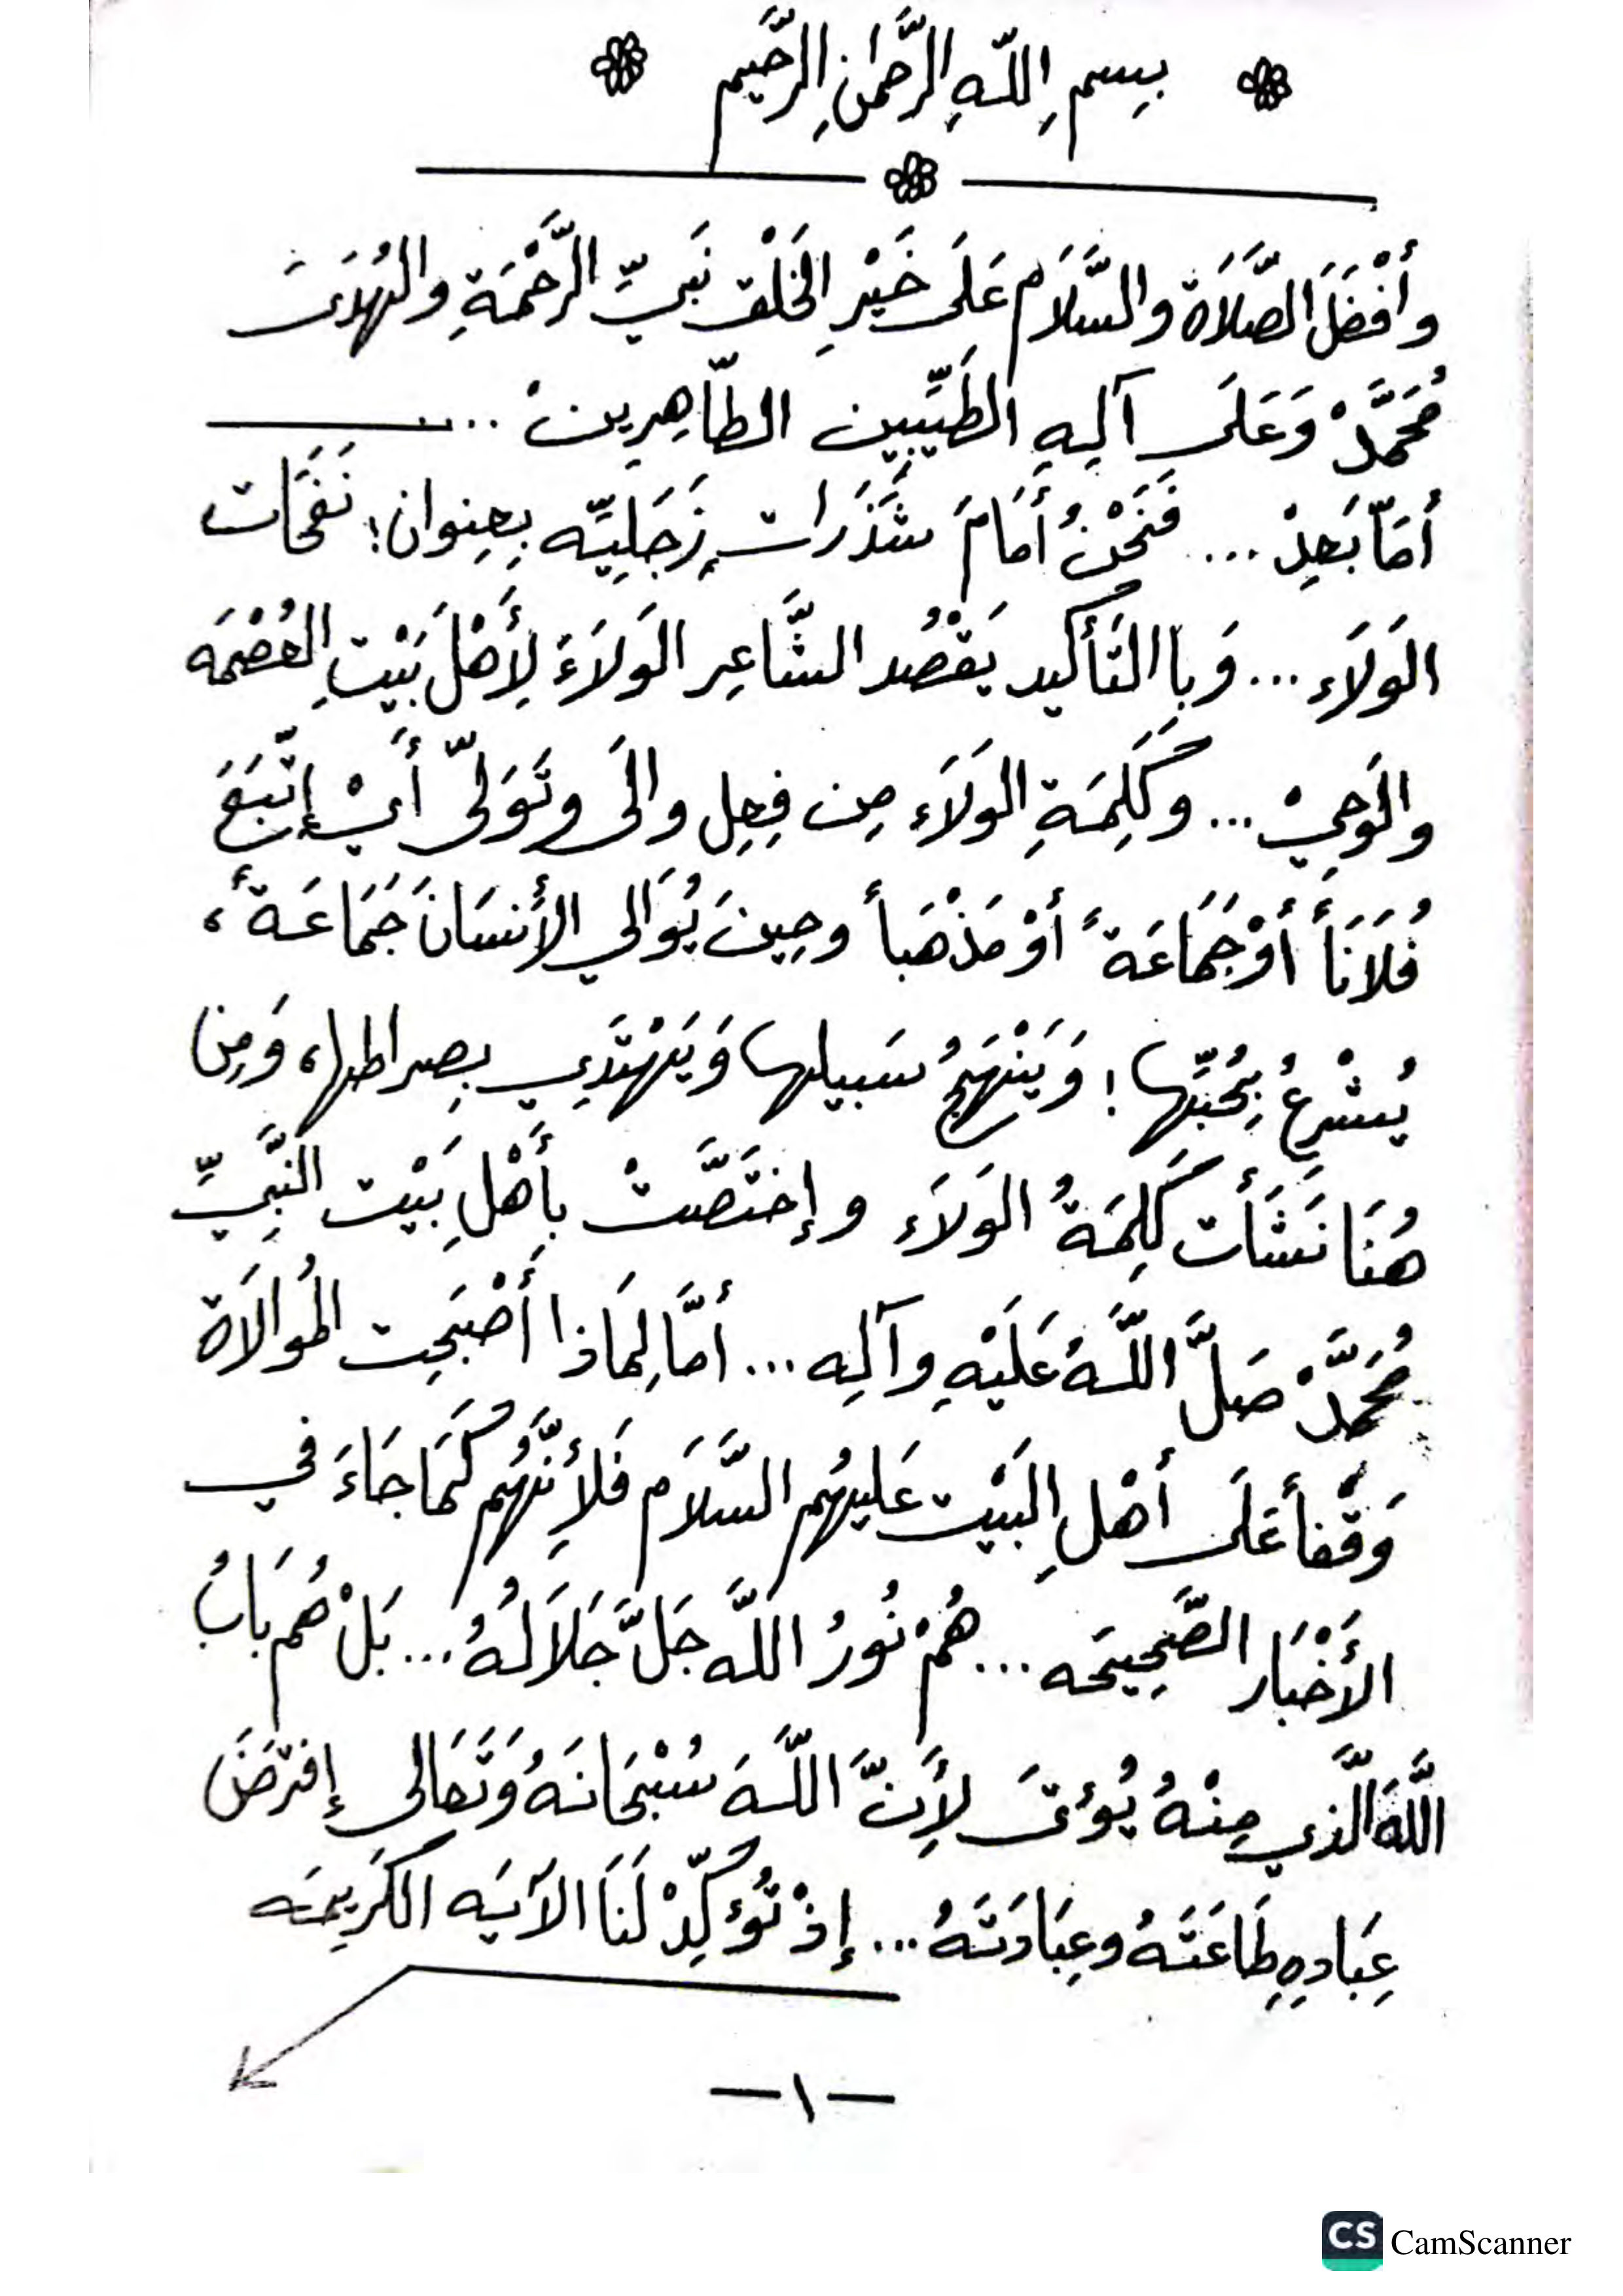 بِسمِ اللّهِ الرَّحمٰنِ الرَّحيم
وأَفْضَلَ الصَّلَاة والسَّلَام عَلَى خَيْرِ الخَلْق نَبيِّ الرَّحْمَةِ والهُدَىَ
مُحَمَّدْ وَعَلَى آلِهِ الطَيِّبِين الطّاهِرِينْ ....
أمّا بَعدْ ... فَنَحْنُ أَمَامَ شَذَرَات زَجَلِيّه بِعِنوان: نَفَحَات
الوَلَاء ... وَبِاالتَأكيد يَقْصُد الشَّاعِر الوَلَاءَ لِأَهْلَ بَيْتِ العُصْمَه
والوَحِيْ ... وكَلِمَةِ الوَلَاء مِن فِعِل والَى وتَوَلّى أَيْ إتّبَعَ
فُلَانَاً أَوْ جَمَاعَةً أَوْ مَذْهَبأ وحِينَ يُوَالي الأنسَانَ جَمَاعَةً،
يُشْرِعُ بِحُبِّها ! وَيَنْهَجُ سَبيلها وَيَهْتَدِي بِصراطها، وَمِن
هُنَا نَشَأَت كَلِمَةُ الوَلَاَء وإختَصَّتْ بِأَهْلِ بَيْت النَّبِيِّ
مُحَمَّدْ صَلَّ اللَّهُ عَلَيْهِ وآلِه ... أمَّا لِمَاذا أَصْبَحِت المُوالَاة
وَقْفاً عَلَى أهْلِ البَيْت عَليهُم السَّلَام فَلأِنَّهُم كَمَا جَاءَ في
الأَخْبَار الصَّحِيحَه ... هُمْ نُورُ اللَّه جَلَّ جَلَالَهُ ... بَلْ هُم بَابُ
اللَّهَ الَّذي مِنْهُ يُؤتىَ لأَِنَّ اللَّهَ سُبْحَانَهُ وَتَعَالى إفترَضَ
عِبَادِهِ طَاعَتَهُ وعِبَادَتَهُ ... إذْ تُؤكِّدْ لَنَا الآيَه الكَرِيمَه
— ١ —
CS CamScanner